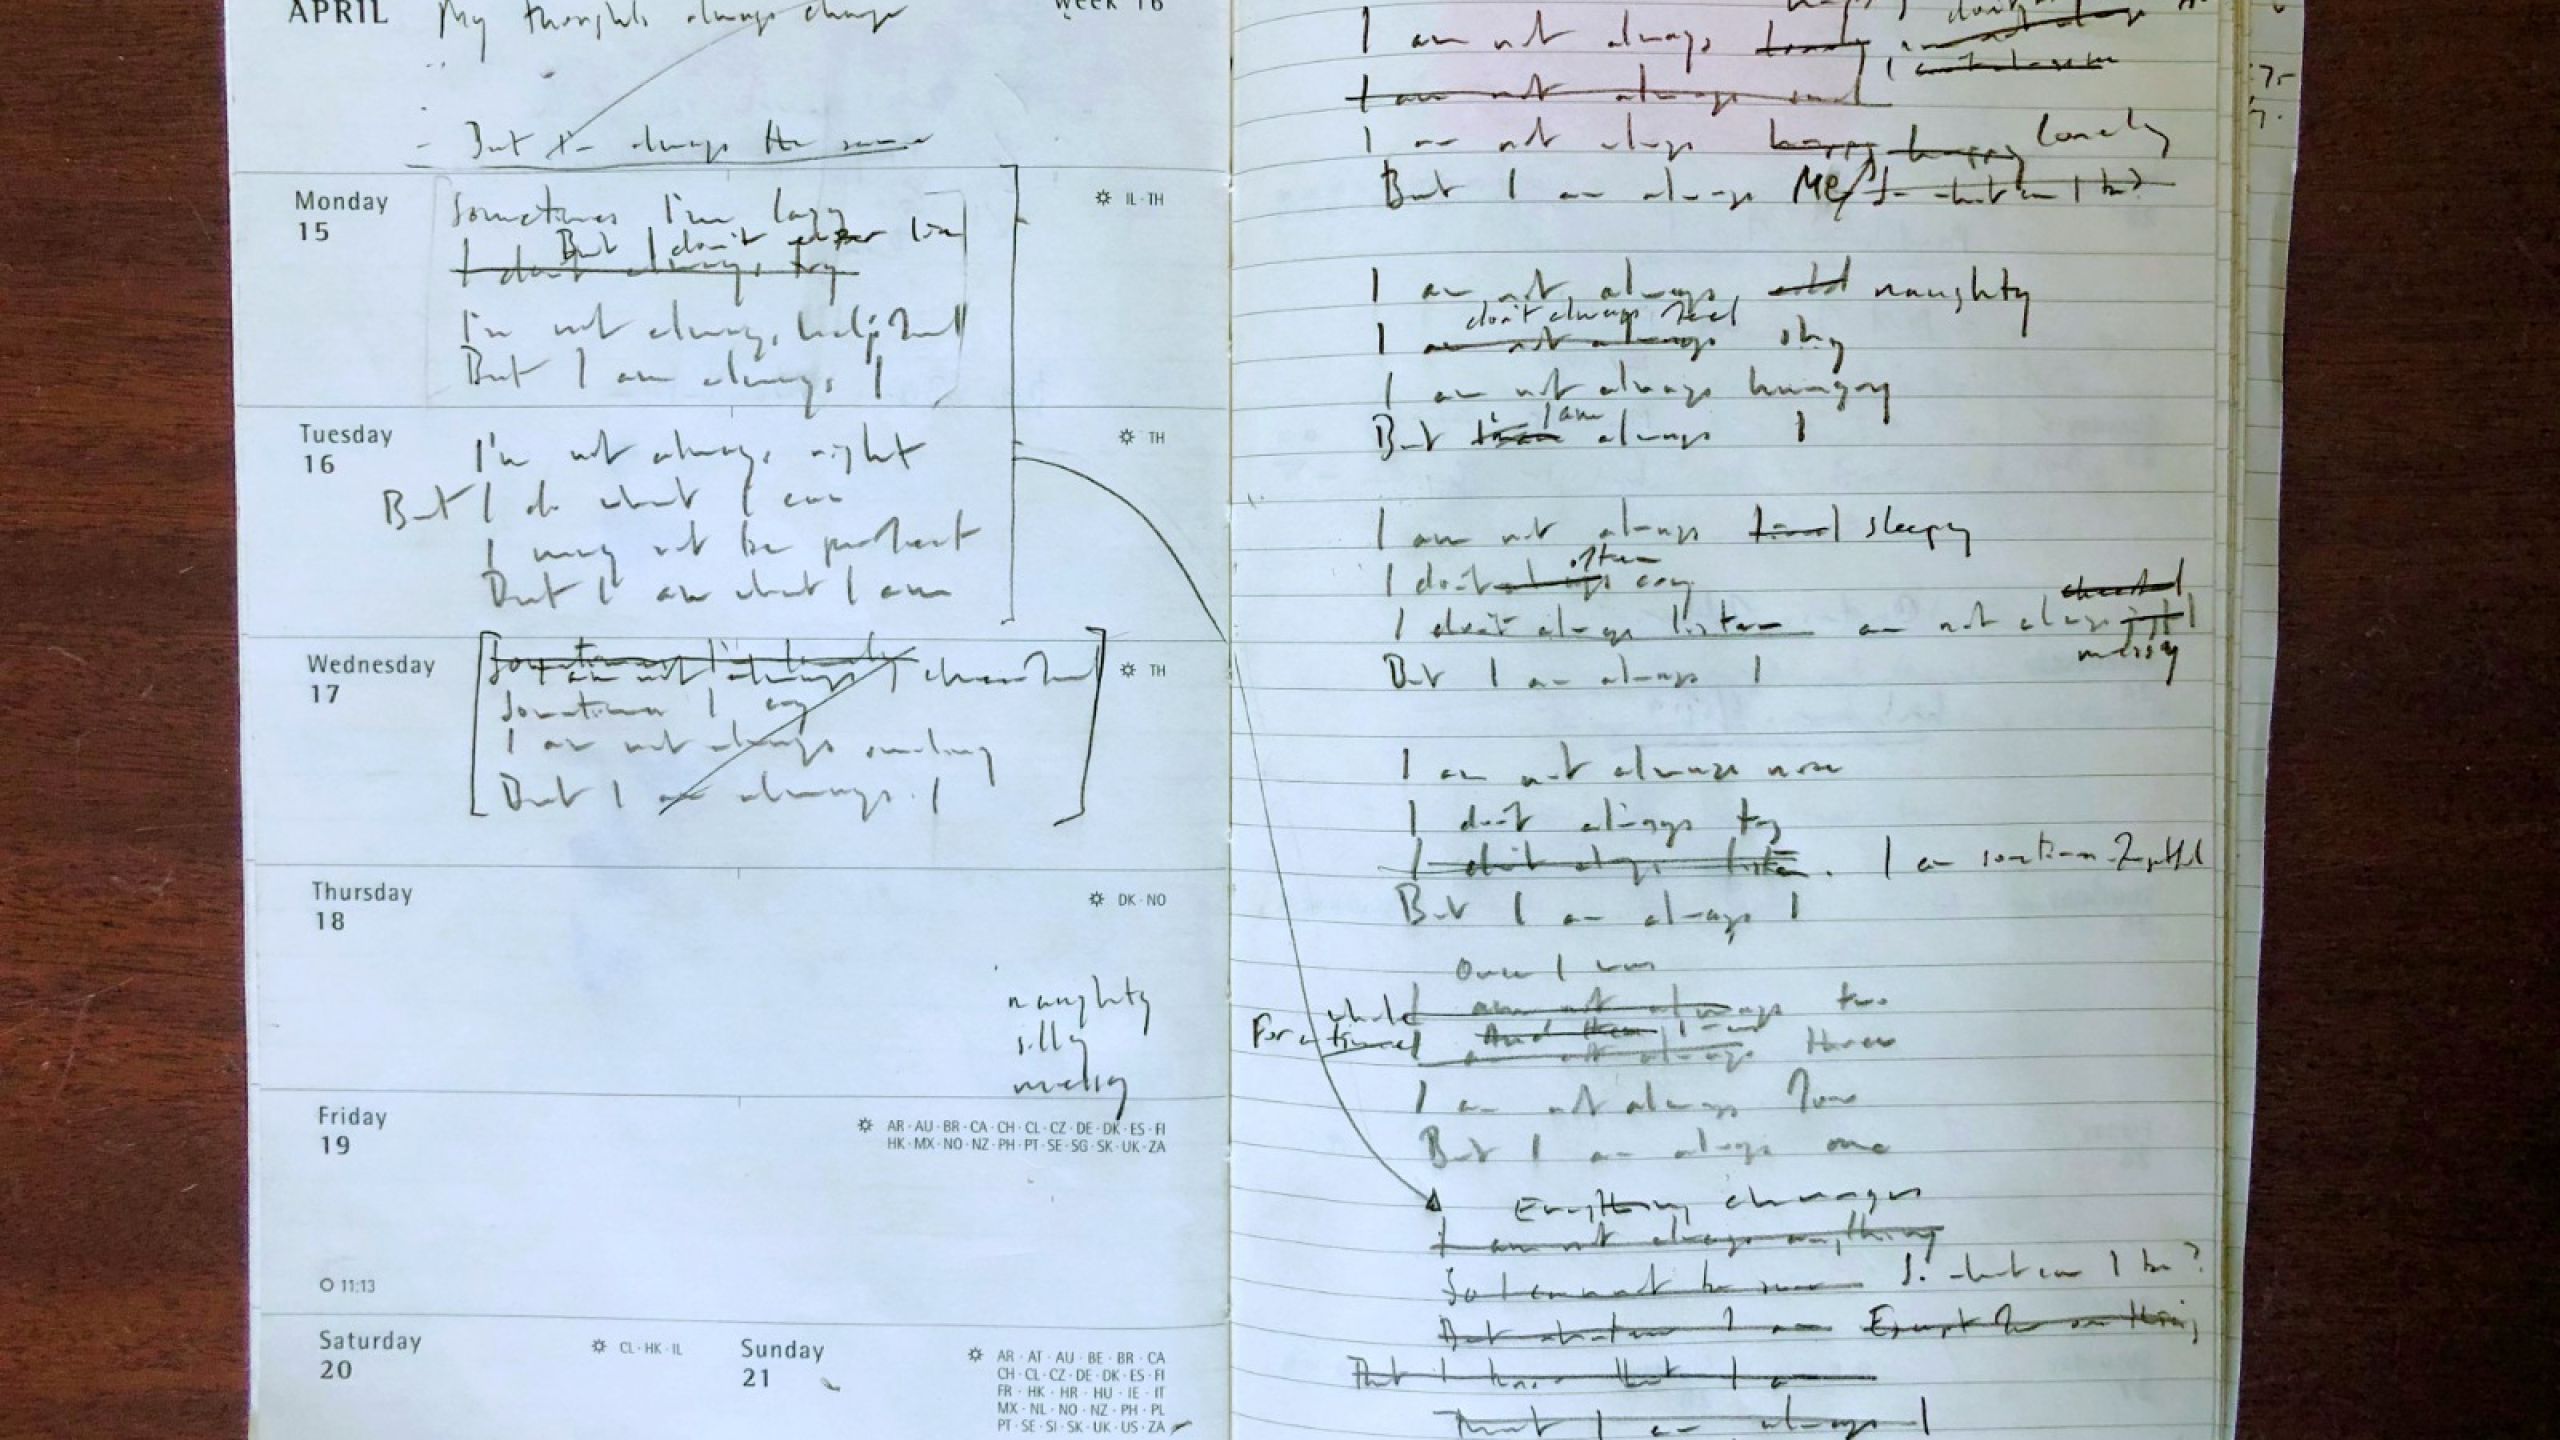 APRIL My thoughts always change week 16
But I'm always the same
Monday
15
IL · TH
Sometimes I'm lazy
But I don't
I don't always try
I'm not always helpful
But I am always I
Tuesday
16
TH
I'm not always right
But I do what I can
I may not be perfect
But I am what I am
Wednesday
17
TH
Sometimes I'm lonely
am not always cheerful
Sometimes I cry
I am not always smiling
But I am always I
Thursday
18
DK · NO
naughty
silly
messy
Friday
19
AR · AU · BR · CA · CH · CL · CZ · DE · DK · ES · FI
HK · MX · NO · NZ · PH · PT · SE · SG · SK · UK · ZA
11:13
Saturday
20
CL · HK · IL
Sunday
21
AR · AT · AU · BE · BR · CA
CH · CL · CZ · DE · DK · ES · FI
FR · HK · HR · HU · IE · IT
MX · NL · NO · NZ · PH · PL
PT · SE · SI · SK · UK · US · ZA
I am not always
I am not always
I am not always happy happy lonely
But I am always Me/So what can I be?
I am not always naughty
don't always feel
I am not always shy
I am not always hungry
I am
But always I
I am not always tired sleepy
often
I don't always cry
cheerful
I don't always listen am not always
messy
But I am always I
I am not always
I don't always try
I don't always listen. I am sometimes
But I am always I
Once I was
I am not always two
while
And then I
For a time I am not always three
I am not always four
But I am always one
Everything changes
I am not always anything
So I cannot be So what can I be?
But whatever I am Except for one thing
That I know that I am
That I am always I